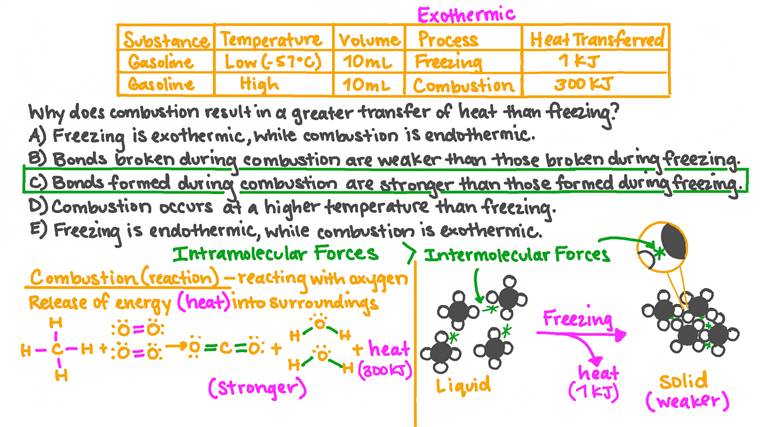 Exothermic
Substance Temperature Volume Process Heat Transferred
Gasoline Low (-57°C) 10mL Freezing 1 KJ
Gasoline High 10mL Combustion 300 KJ
Why does combustion result in a greater transfer of heat than freezing?
A) Freezing is exothermic, while combustion is endothermic.
B) Bonds broken during combustion are weaker than those broken during freezing.
C) Bonds formed during combustion are stronger than those formed during freezing.
D) Combustion occurs at a higher temperature than freezing.
E) Freezing is endothermic, while combustion is exothermic.
Intramolecular Forces > Intermolecular Forces
Combustion (reaction) – reacting with oxygen
Release of energy (heat) into surroundings
H
H–C–H + O=O → O=C=O + H O H + heat
H O=O H O H (300 KJ)
(Stronger)
Liquid
Freezing
heat
(1 KJ)
Solid
(weaker)